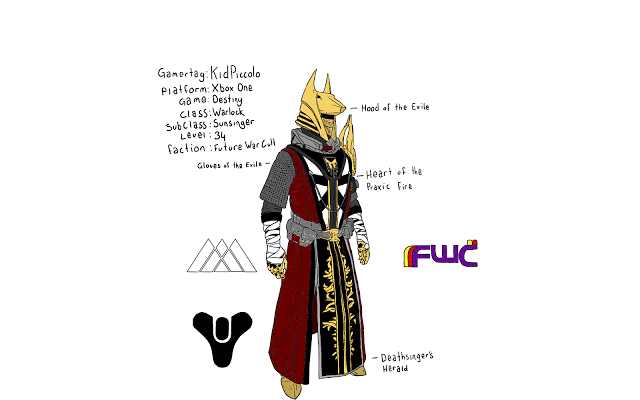 Gamertag: KidPiccolo
Platform: Xbox One
Game: Destiny
Class: Warlock
Subclass: Sunsinger
Level: 34
Faction: Future War Cult
Gloves of the Exile
Hood of the Exile
Heart of the
Praxic Fire
FWC
Deathsinger's
Herald